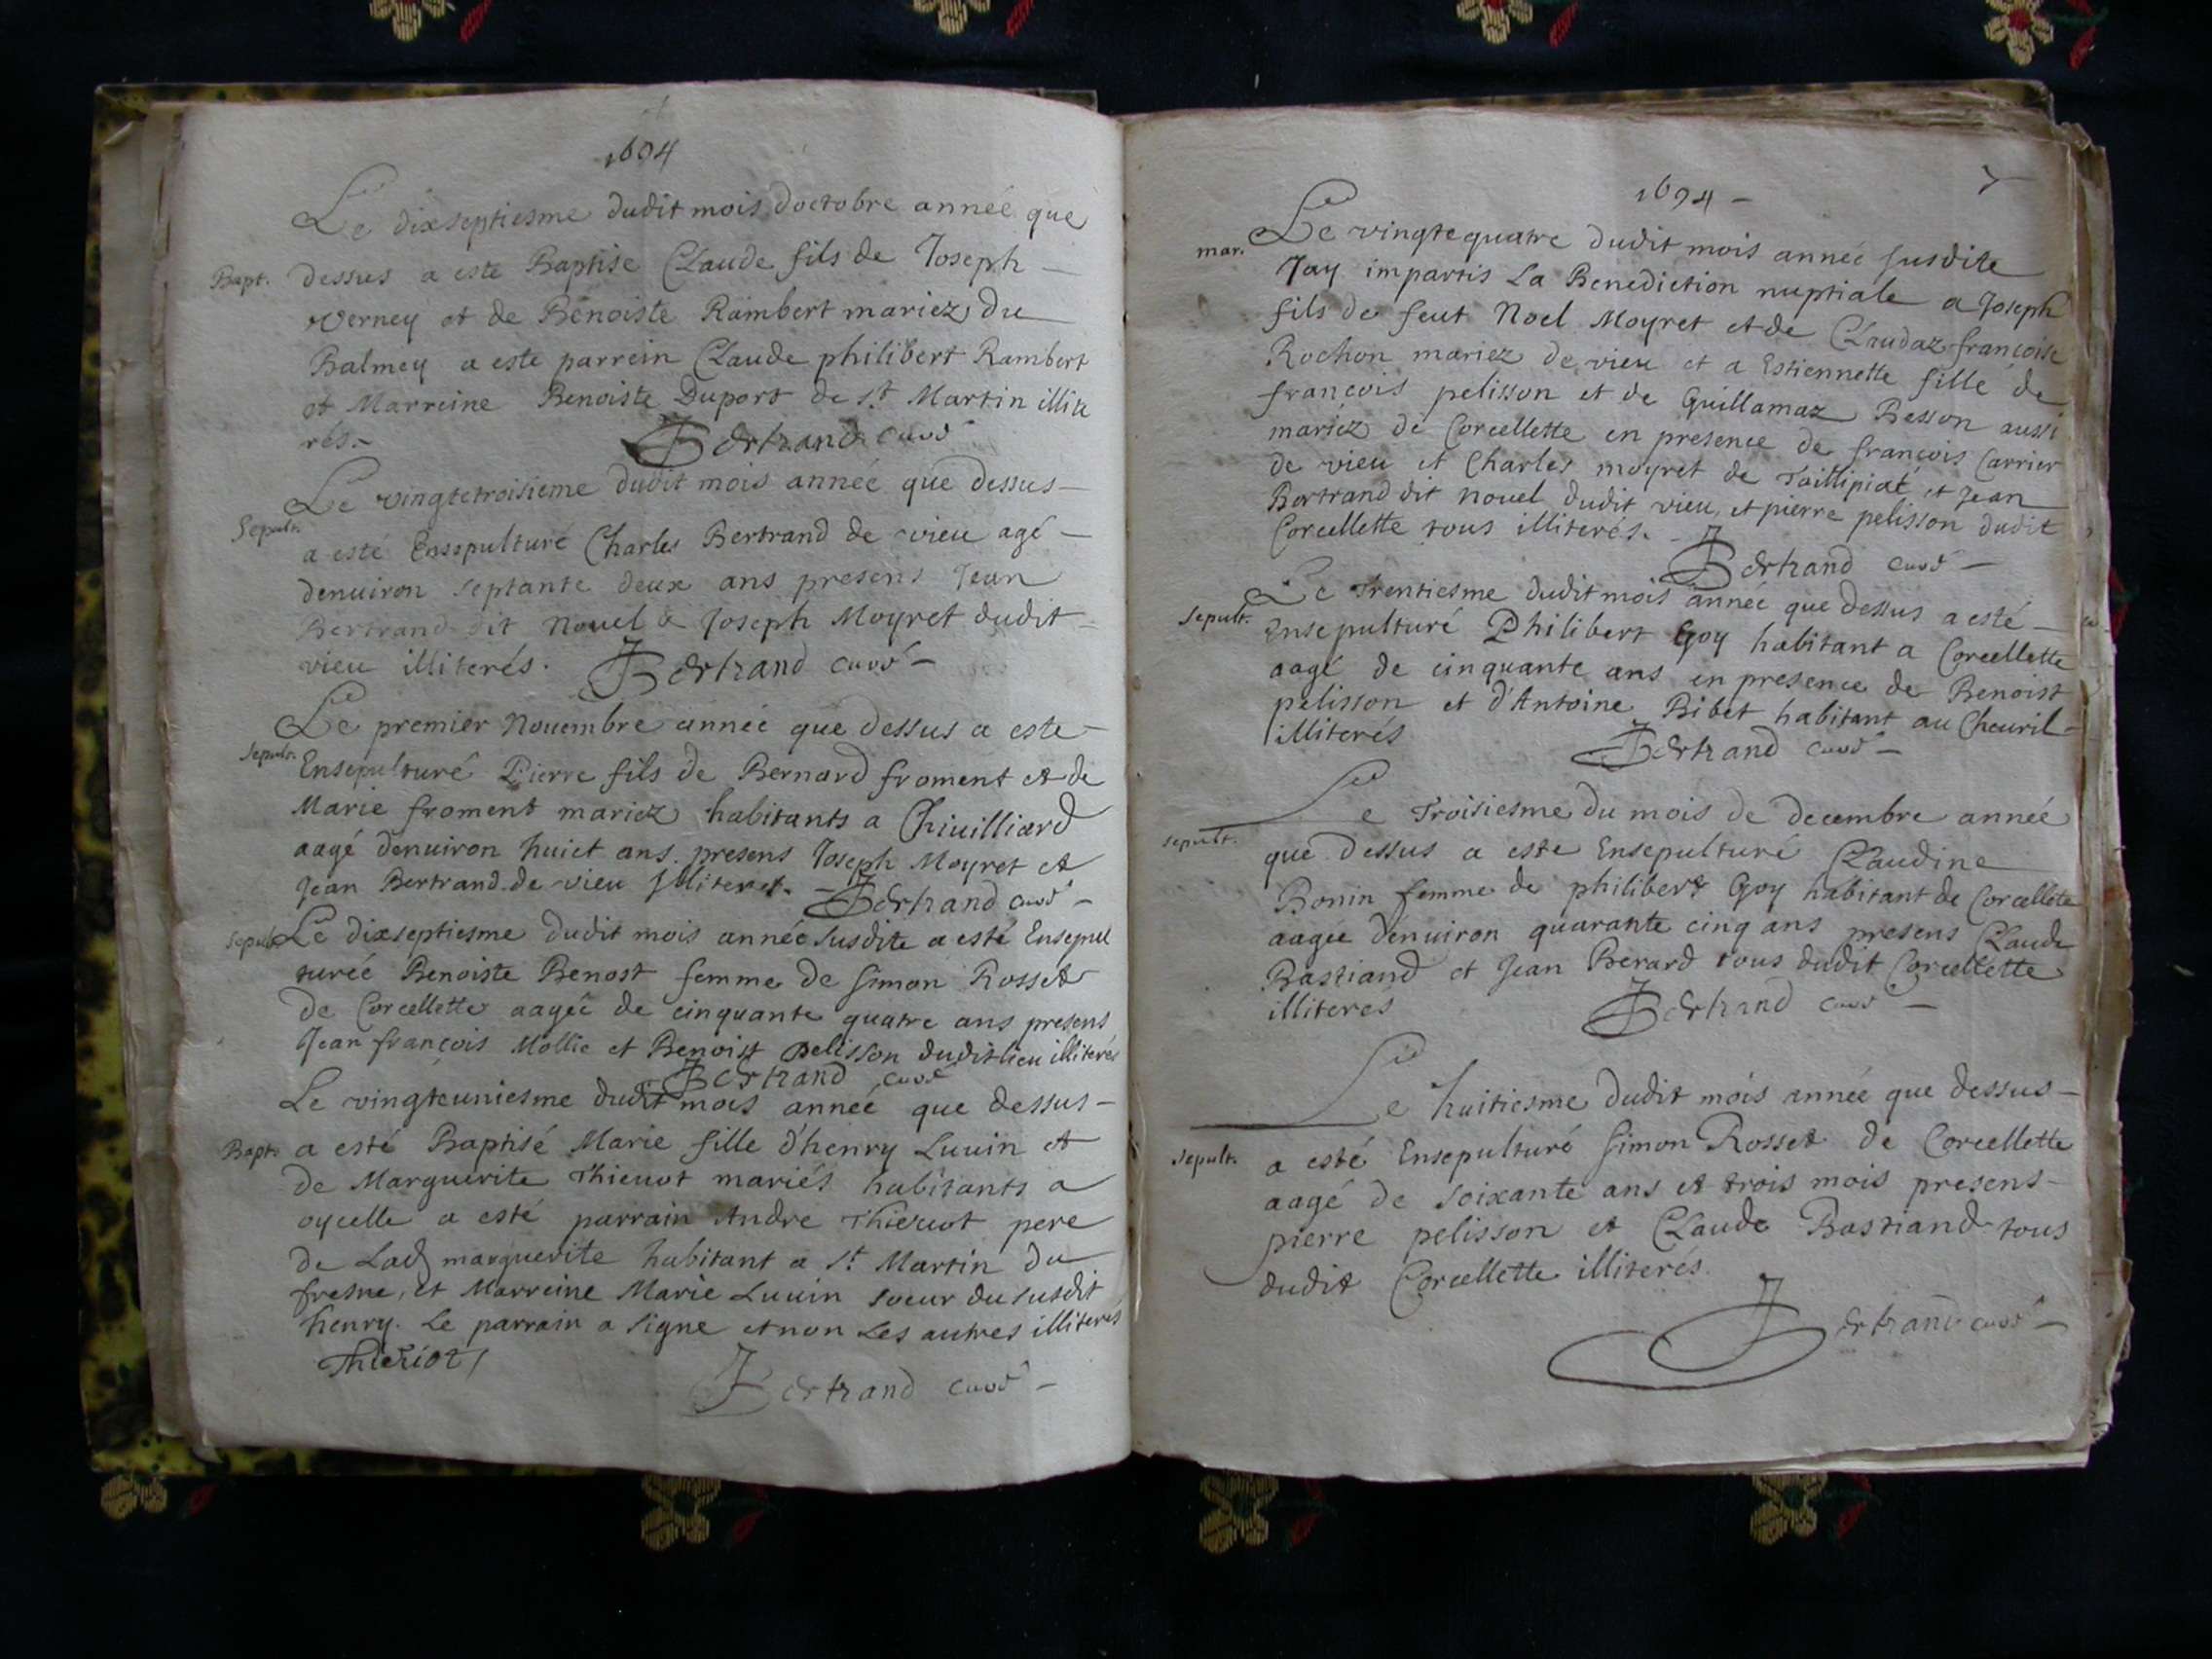 1694
Le dixseptiesme dudit mois doctobre année que
Bapt. dessus a este Baptise Claude fils de Joseph
Verney et de Benoiste Rambert mariez du
Balmey a este parrein Claude philibert Rambert
et Marreine Benoiste Duport de St Martin illite
rés.
Bertrand curé
Le vingtetroisieme dudit mois année que dessus
Sepult. a esté Ensepulturé Charles Bertrand de vieu agé
denuiron septante deux ans presens Jean
Bertrand dit nouel & Joseph Moyret dudit
vieu illiterés. Bertrand curé
Le premier Nouembre année que dessus a este
Sepult. Ensepulturé Pierre fils de Bernard froment et de
Marie froment mariez habitants a Chiuilliard
aagé denuiron huict ans presens Joseph Moyret et
Jean Bertrand de vieu Illiterés. Bertrand curé
Sepult. Le dixseptiesme dudit mois année susdite a esté Ensepul
turée Benoiste Benost femme de simon Rosset
de Corcellette aagée de cinquante quatre ans presens
Jean françois Mollie et Benoist pelisson duditlieu illiterés
Bertrand curé
Le vingteuniesme dudit mois année que dessus
Bapt. a esté Baptisé Marie fille d'henry Luuin et
de Marguerite Thieuot mariés habitants a
oycelle a esté parrain Andre Thieruot pere
de Lad marguerite habitant a St Martin du
fresne, et Marreine Marie Luuin soeur du susdit
henry. Le parrain a signe et non Les autres illiterés
Thieriot
Bertrand curé
1694
7
mar. Le vingtequatre dudit mois année susdite
Jay impartis La Benediction nuptiale a Joseph
fils de feut Noel Moyret et de Claudaz françoise
Rochon mariez de vieu et a Estiennette fille de
françois pelisson et de Guillamaz Besson aussi
mariez de Corcellette en presence de françois Carrier
de vieu et Charles moyret de Taillipiat et Jean
Bertrand dit nouel dudit vieu, et pierre pelisson dudit
Corcellette tous illiterés.
Bertrand curé
Le Trentiesme dudit mois année que dessus a esté
Sepult. Ensepulturé Philibert Goy habitant a Corcellette
aagé de cinquante ans en presence de Benoist
pelisson et d'Antoine Bibet habitant au Cheuril
illiterés
Bertrand curé
Le Troisiesme du mois de decembre année
sepult. que dessus a este Ensepulturé Claudine
Bonin femme de philibert Goy habitant de Corcellete
aagée denuiron quarante cinq ans presens Claude
Bastiand et Jean Berard tous dudit Corcellette
illiteres
Bertrand curé
Le huitiesme dudit mois année que dessus
sepult. a esté Ensepulturé simon Rosset de Corcellette
aagé de soixante ans et trois mois presens
pierre pelisson et Claude Bastiand tous
dudit Corcellette illiterés.
Bertrand curé